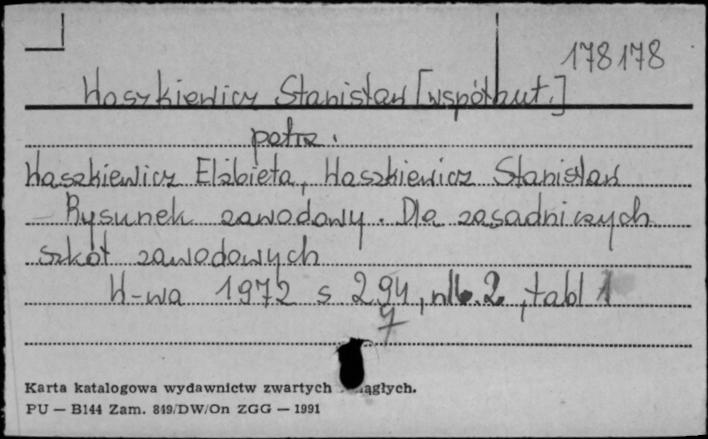 178178
Waszkiewicz Stanisław [współaut.]
patrz.
Waszkiewicz Elżbieta, Waszkiewicz Stanisław
- Rysunek zawodowy. Dla zasadniczych
szkół zawodowych
W-wa 1972 s 294, nlb. 2, tabl 1
7
Karta katalogowa wydawnictw zwartych ągłych.
PU — B144 Zam. 849/DW/On ZGG — 1991